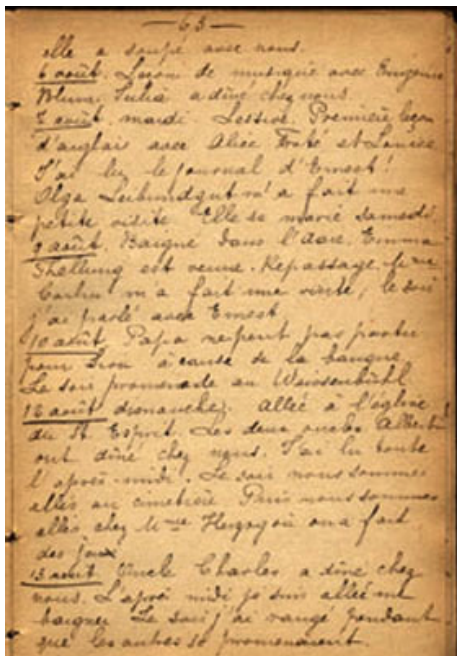 — 63 —
elle a soupé avec nous.
6 août. Leçon de musique avec Eugénie
Blum. Julia a dîné chez nous.
7 août, mardi Lessive. Première leçon
d'anglais avec Alice et Louise
J'ai lu le journal d'Ernest!
Olga m'a fait une
petite visite Elle se marie samedi.
9 août. Baigné dans l'Aare. Emma
Thellung est venue. Repassage. Mme
m'a fait une visite, le soir
j'ai parlé avec Ernest
10 août Papa ne peut pas partir
pour à cause de la banque
Le soir promenade au Weissenbühl
12 août dimanche. Allée à l'église
du St Esprit. Les deux oncles Albert
ont dîné chez nous. J'ai lu toute
l'après-midi. Le soir nous sommes
allés au cimetière Puis nous sommes
allés chez Mme où on a fait
des jeux
13 août Oncle Charles a dîné chez
nous. L'après midi je suis allée me
baigner Le soir j'ai rangé pendant
que les autres se promenaient.